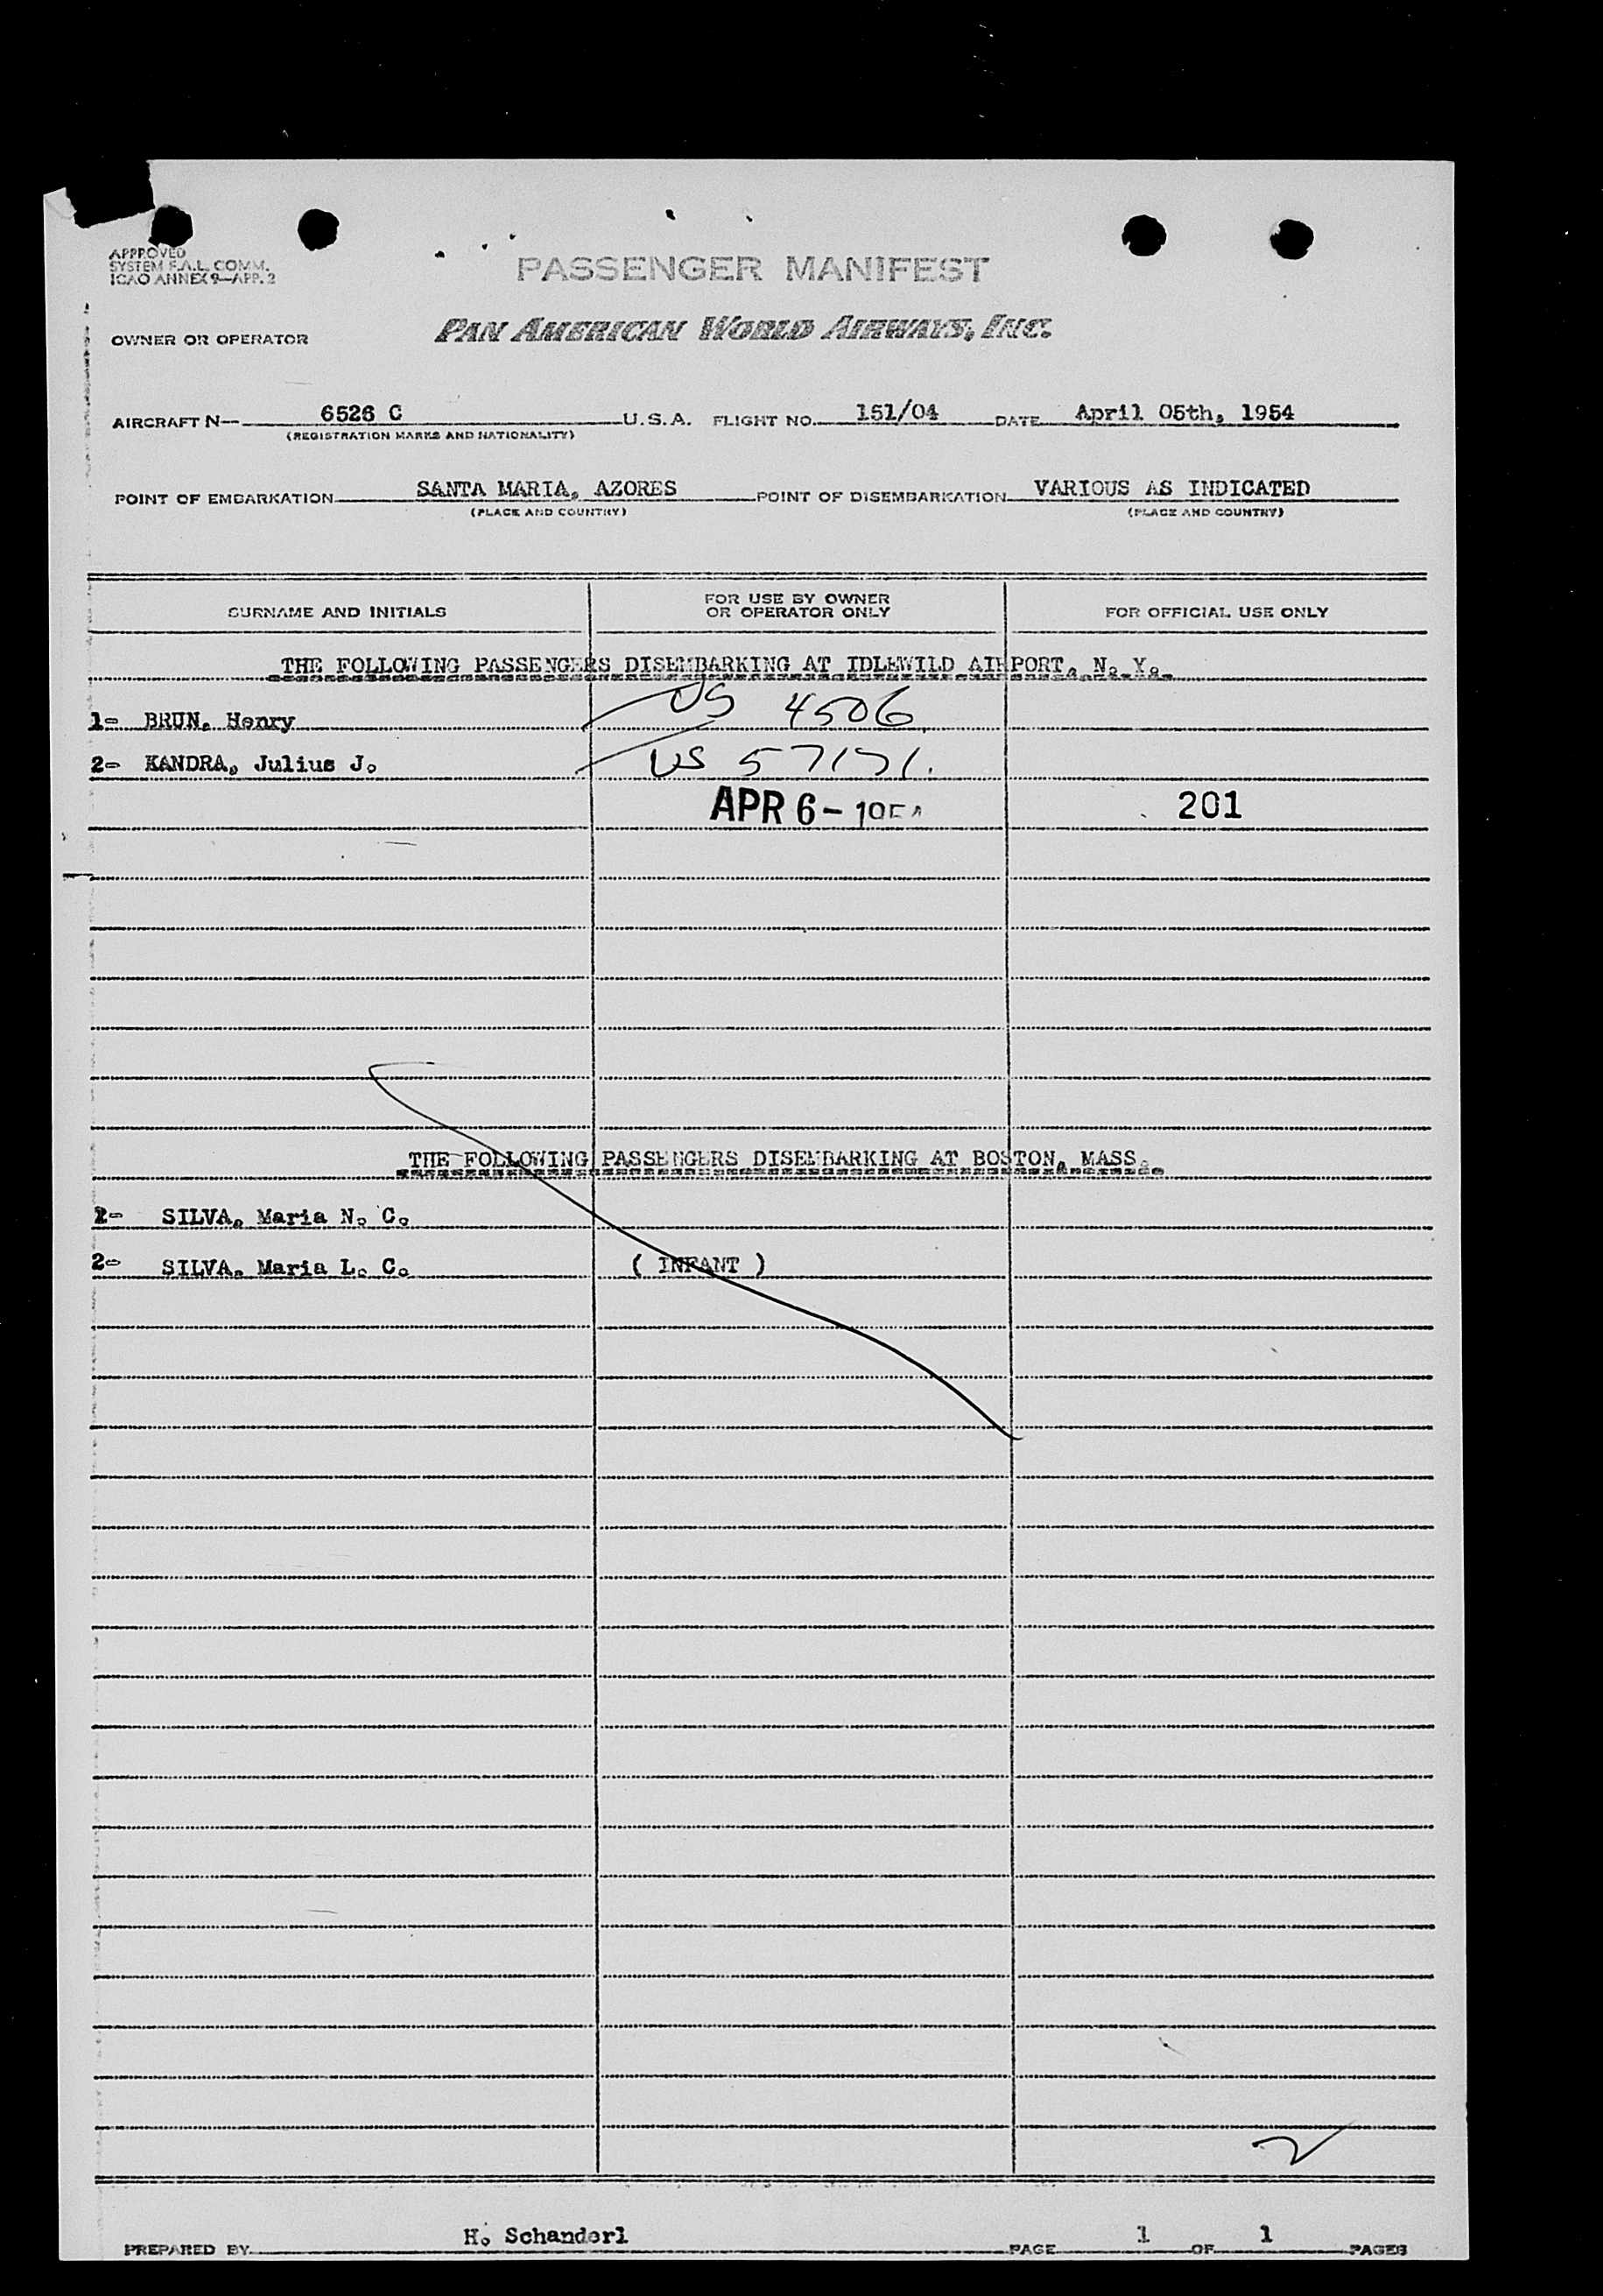 APPROVED
SYSTEM F.A.L. COMM.
ICAO ANNEX 9—APP. 2
PASSENGER MANIFEST
OWNER OR OPERATOR PAN AMERICAN WORLD AIRWAYS, INC.
AIRCRAFT N— 6526 C U.S.A. FLIGHT NO. 151/04 DATE April 05th, 1954
(REGISTRATION MARKS AND NATIONALITY)
POINT OF EMBARKATION SANTA MARIA, AZORES POINT OF DISEMBARKATION VARIOUS AS INDICATED
(PLACE AND COUNTRY) (PLACE AND COUNTRY)
SURNAME AND INITIALS FOR USE BY OWNER OR OPERATOR ONLY FOR OFFICIAL USE ONLY
THE FOLLOWING PASSENGERS DISEMBARKING AT IDLEWILD AIRPORT, N. Y.
1- BRUN, Henry US 4506
2- KANDRA, Julius J. US 57171.
APR 6 - 1954 201
THE FOLLOWING PASSENGERS DISEMBARKING AT BOSTON, MASS.
1- SILVA, Maria N. C.
2- SILVA, Maria L. C. ( INFANT )
2
PREPARED BY H. Schanderl PAGE 1 OF 1 PAGES